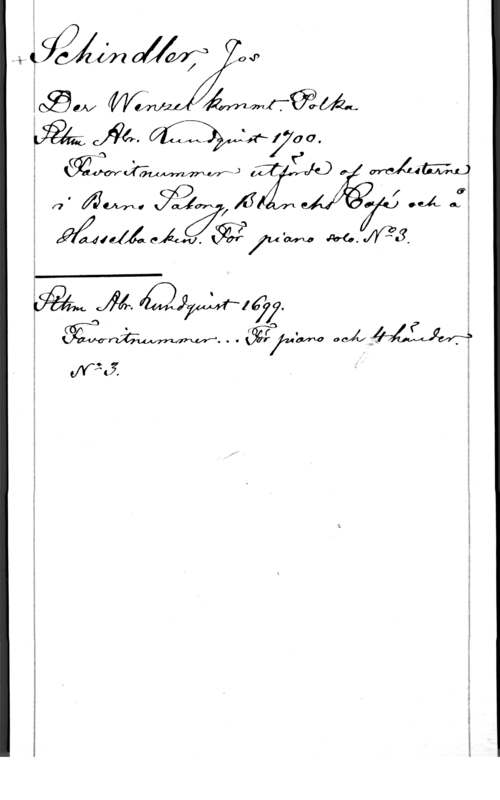 Schindler, Jos
Der Wenzel kommt. Polka
Sthm Abr. Lundquist 1700.
Favoritnummer utförde af orchestarne
i Berns Salong, Blanchs Café och å
Hasselbacken. För piano solo. Nº 3.
Sthm Abr. Lundquist 1699.
Favoritnummer... För piano och 4 händer.
Nº 3.